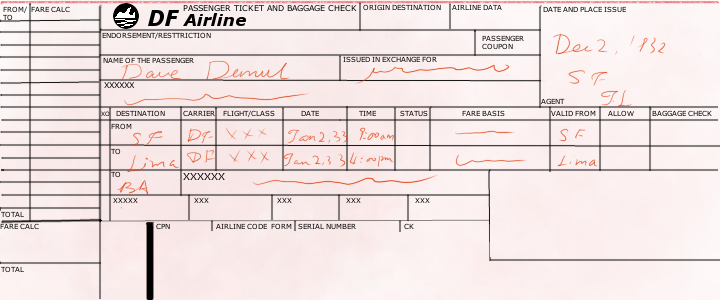 FROM/ TO FARE CALC PASSENGER TICKET AND BAGGAGE CHECK ORIGIN DESTINATION AIRLINE DATA DATE AND PLACE ISSUE
DF Airline
ENDORSEMENT/RESTTRICTION PASSENGER COUPON
Dec 2, '132
NAME OF THE PASSENGER ISSUED IN EXCHANGE FOR
Dave
SF
XXXXXX
AGENT
XO DESTINATION CARRIER FLIGHT/CLASS DATE TIME STATUS FARE BASIS VALID FROM ALLOW BAGGAGE CHECK
FROM SF DF XXX Jan 2, 33 9:00am SF
TO Lima DF XXX Jan 2, 33 4:00pm Lima
TO BA XXXXXX
XXXXX XXX XXX XXX XXX
TOTAL
FARE CALC CPN AIRLINE CODE FORM SERIAL NUMBER CK
TOTAL